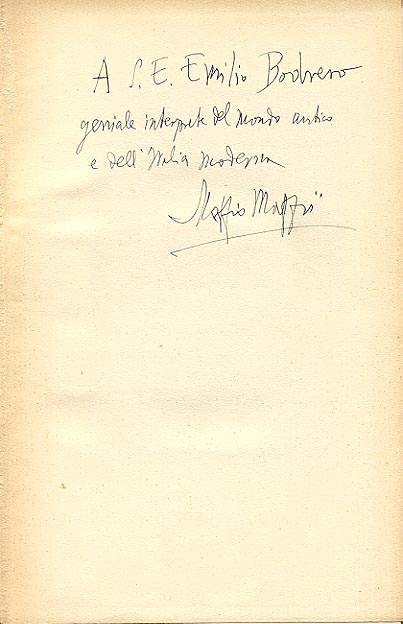 A S. E. Emilio Bodrero
geniale interprete del mondo antico
e dell'Italia moderna
Maffio Maffii